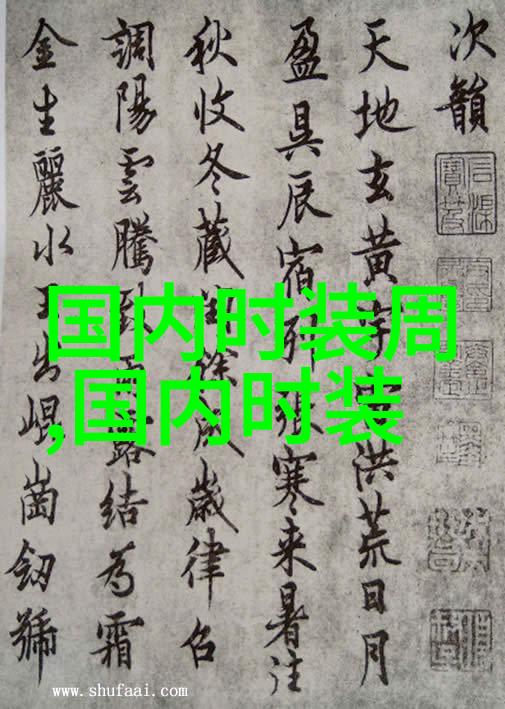 次韻
天地玄黃宇洪荒日月
盈昃辰宿列張寒来暑往
秋收冬藏餘成歲律召
調陽雲騰致雨露結為霜
金生麗水玉出崐崗劒號
国内时装周
,国内时装
www.shufaai.com